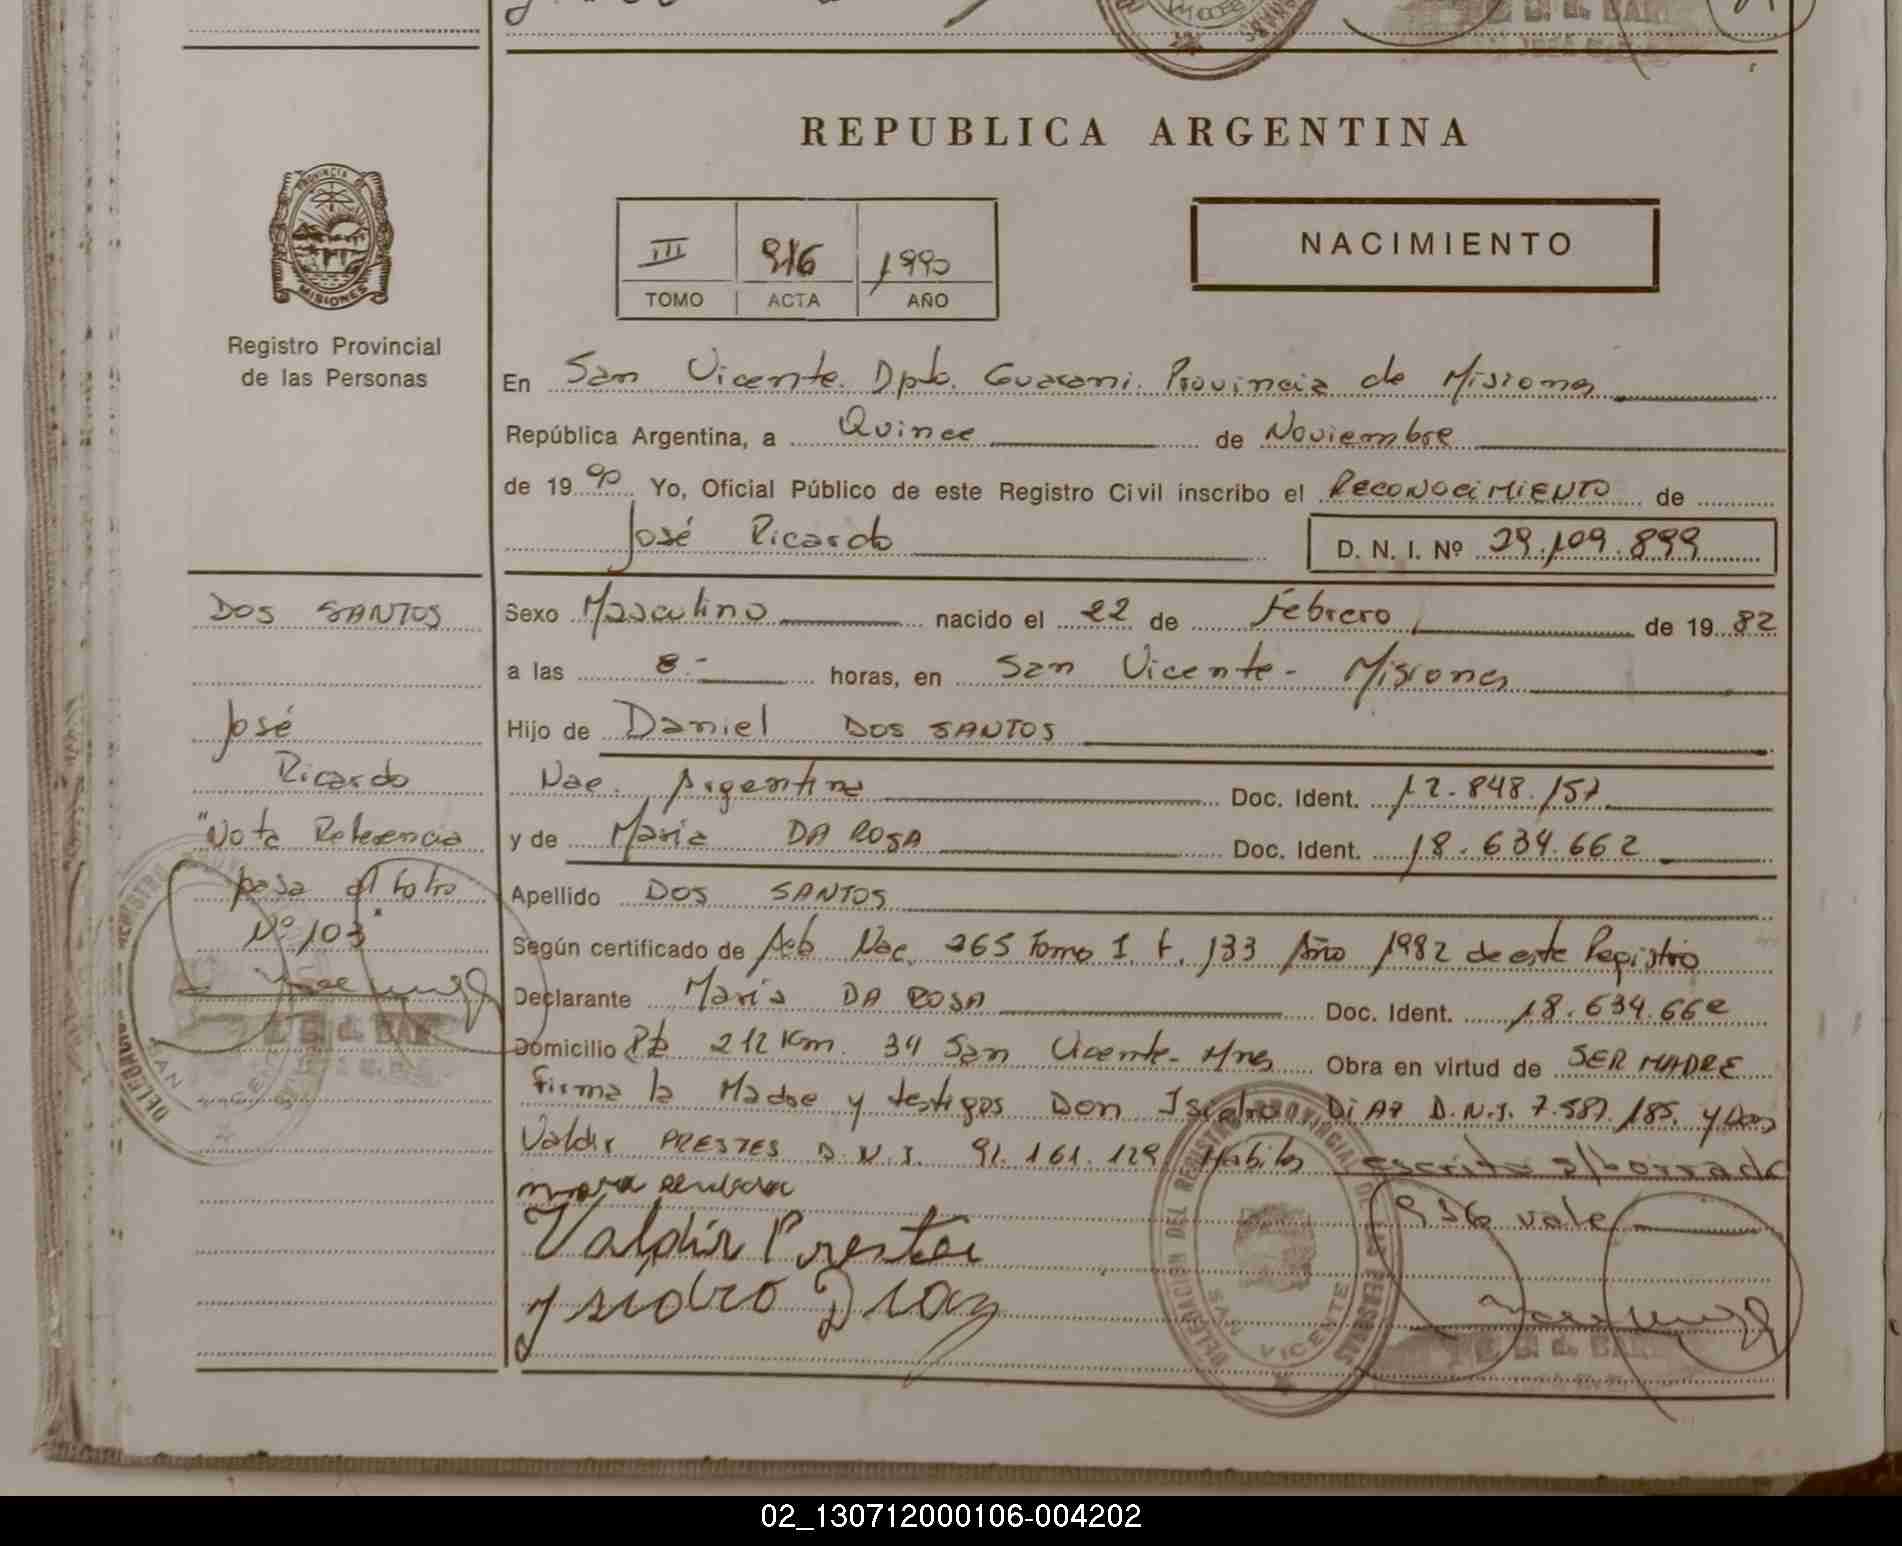 REPUBLICA ARGENTINA
PROVINCIA DE
MISIONES
Registro Provincial
de las Personas
III 916 1990
TOMO ACTA AÑO
NACIMIENTO
En San Vicente. Dpto. Guarani. Provincia de Misiones
República Argentina, a Quince de Noviembre
de 1990 Yo, Oficial Público de este Registro Civil inscribo el RECONOCIMIENTO de
José Ricardo D. N. I. Nº 29.109.899
Sexo Masculino nacido el 22 de Febrero de 1982
a las 8.- horas, en San Vicente - Misiones
Hijo de Daniel DOS SANTOS
Nac. Argentina Doc. Ident. 12.848.157
y de Maria DA ROSA Doc. Ident. 18.634.662
Apellido DOS SANTOS
Según certificado de Acta Nac. 265 Tomo I F. 133 Año 1982 de este Registro
Declarante Maria DA ROSA Doc. Ident. 18.634.662
Domicilio 212 Km. 34 San Vicente - Mnes Obra en virtud de SER MADRE
Firma la Madre y testigos Don Isidro DIAZ D.N.I. 7.587.185. y Don
Valdir PRESTES D.N.I. 92.161.129 Habiles escrito s/borrado
916 vale
Valdir Prestes
Ysidro Diaz
DOS SANTOS
José
Ricardo
"Nota Referencia
pasa al folio
Nº 103"
DELEGACION DEL REGISTRO PROVINCIAL DE LAS PERSONAS
SAN VICENTE
02_130712000106-004202